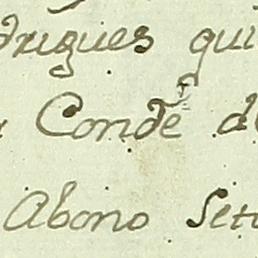 drigues qui
Conde d
Abono Set